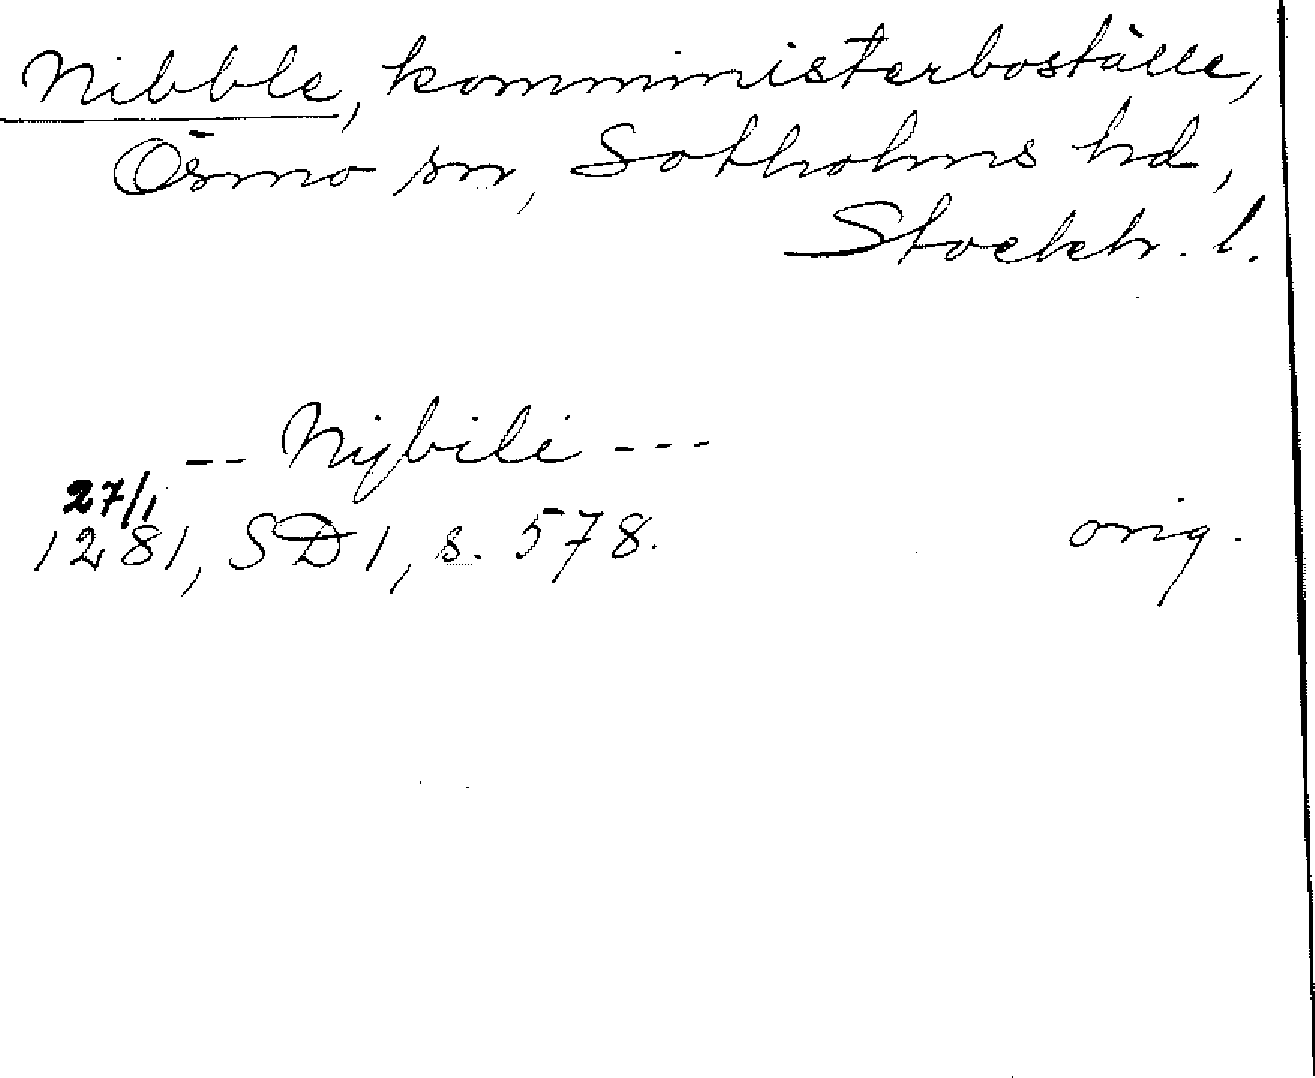 Nibble, komministerboställe,
Ösmo sn, Sotholms hd,
Stockh. l.
-- Nijbili ---
27/1
1281, SD 1, s. 578.
orig.